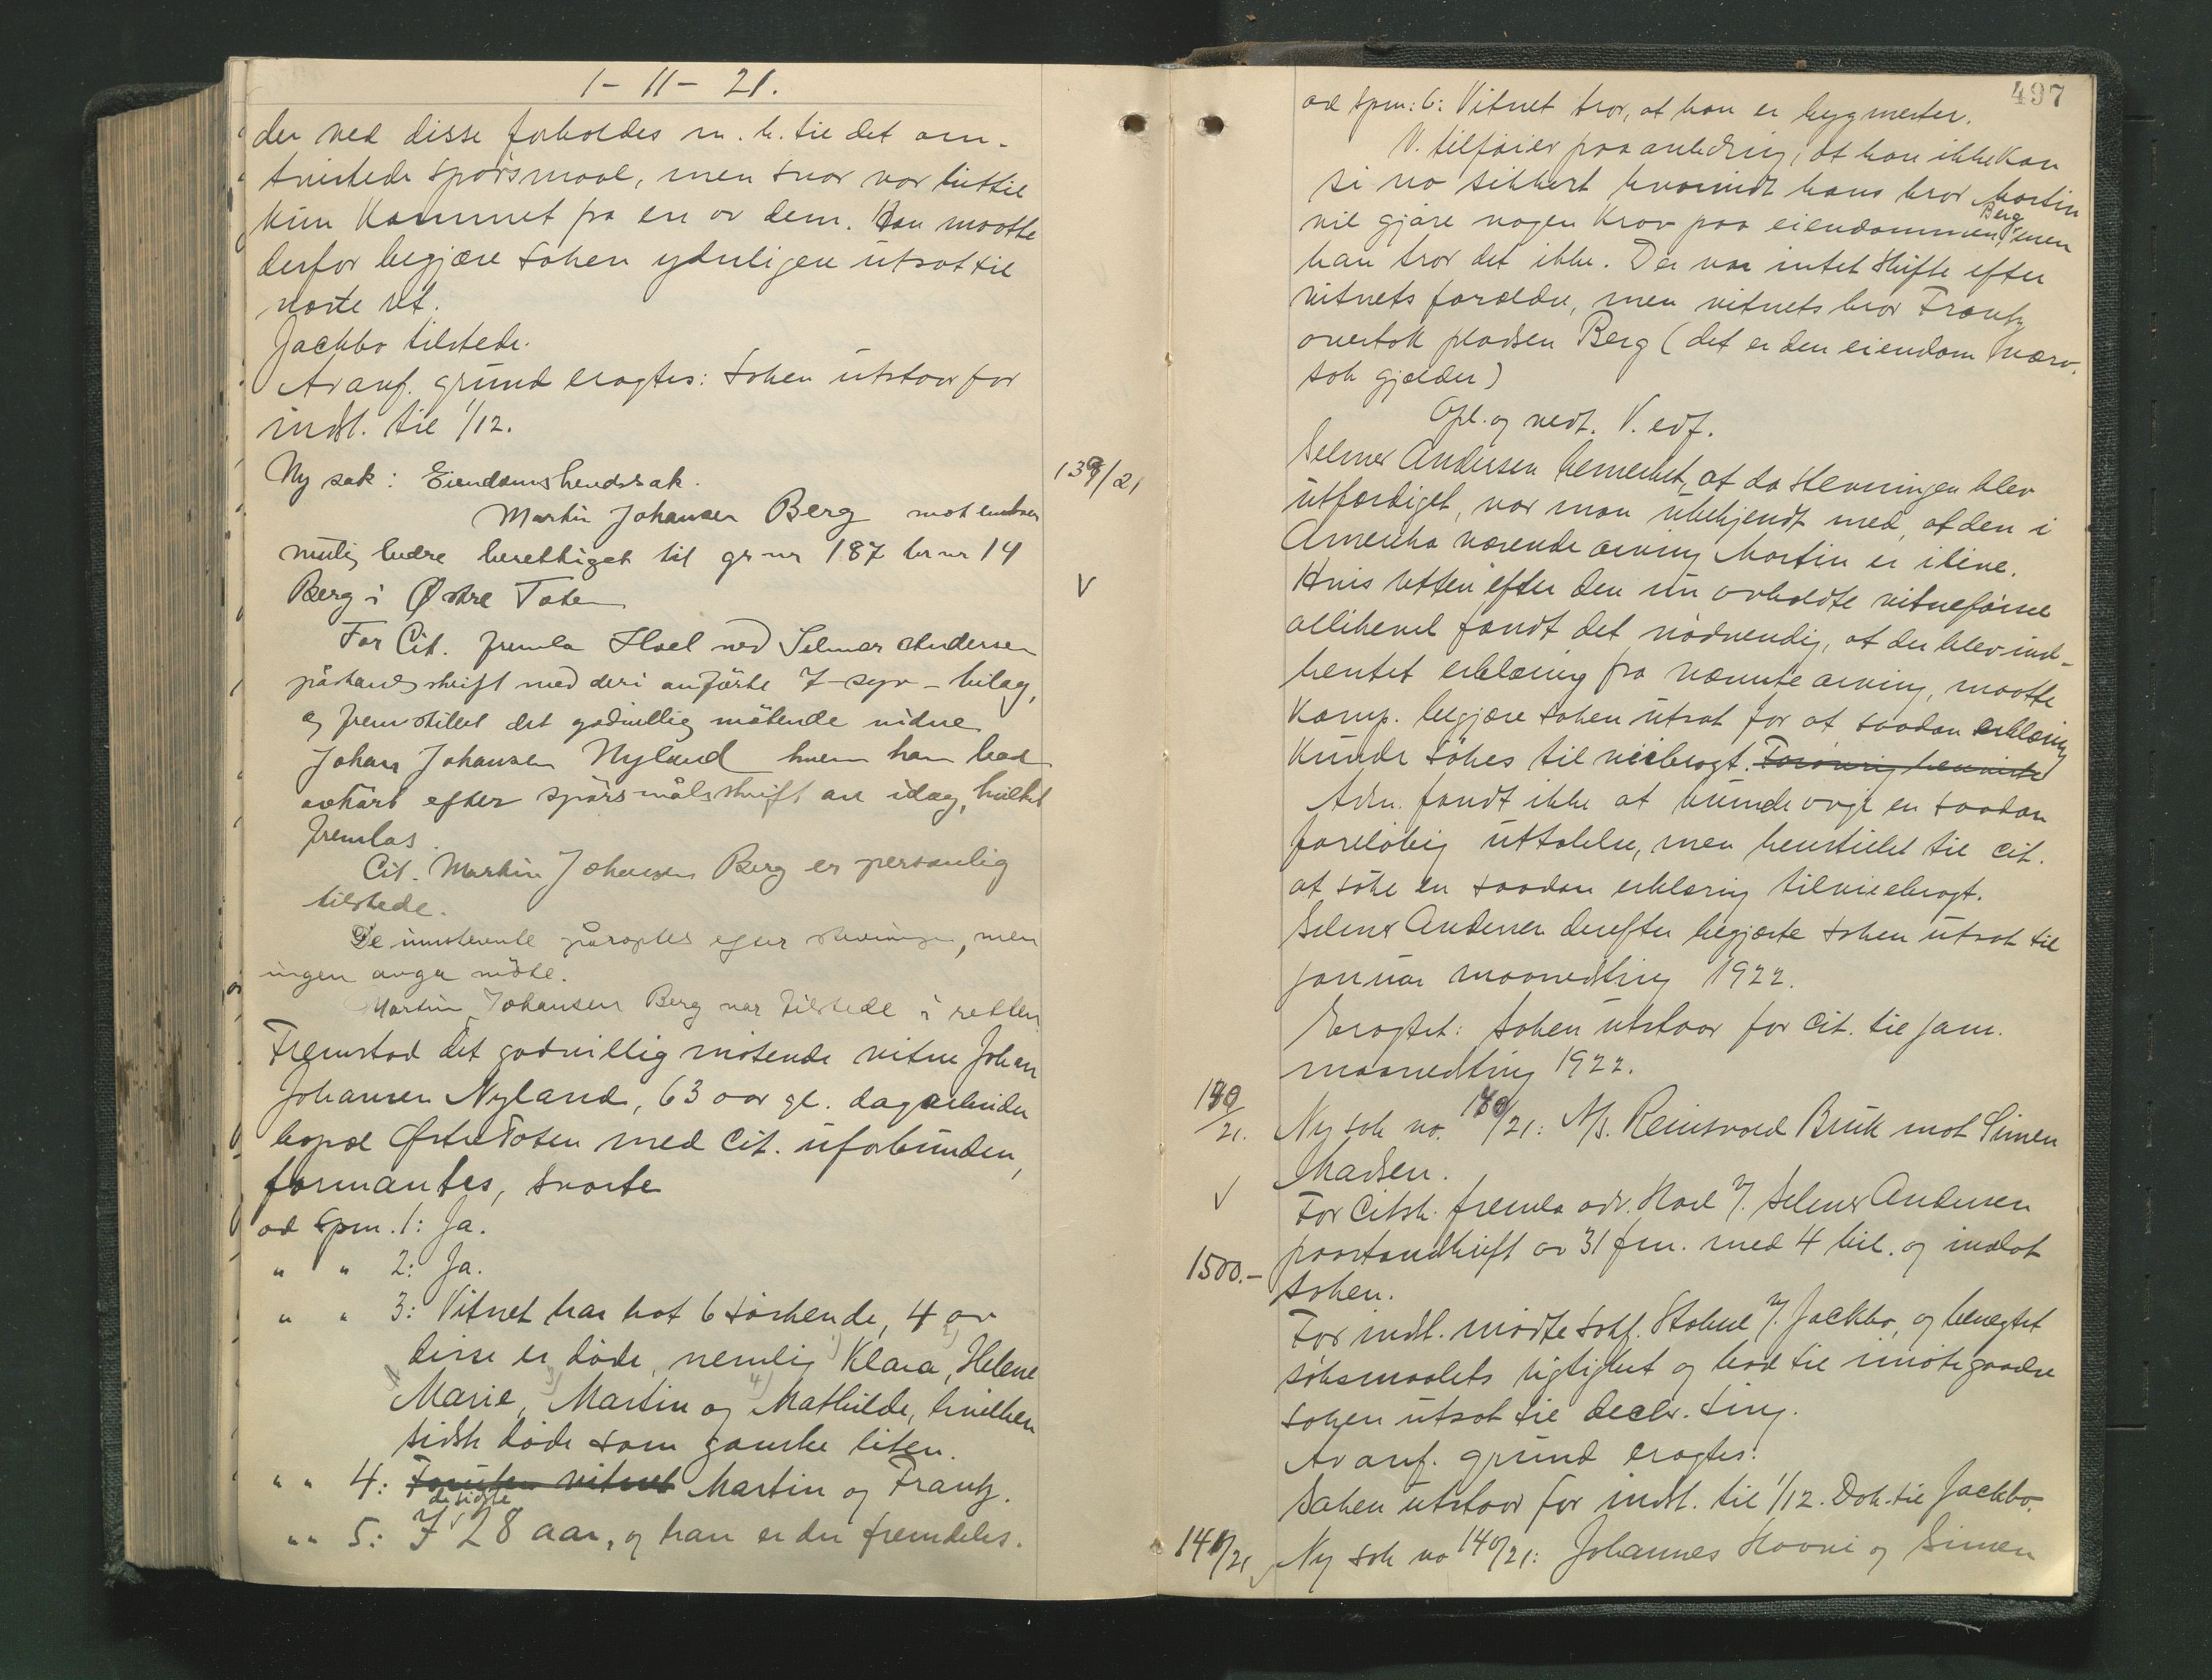 1-11-21.
der ved disse forholdes m. h. til det om-
tvistede spörsmaal, men svar var hittil
kun kommet fra en av dem. Han maatte
derfor begjære saken yderligere utsat til
næste ret.
Jackbo tilstede.
Av anf. grund eragtes: Saken utstaar for
indst. til 1/12.
Ny sak: Eiendomshevdssak. 139/21
Martin Johansen Berg mot enhver
mulig bedre berettiget til gr nr 187 br nr 14
Berg i Østre Toten V
For Cit. fremla Hoel ved Selmer Andersen
påstandsskrift med deri anförte 7 - syv - bilag,
og fremstillet det godvillig mötende vidne
Johan Johansen Nyland hvem han bad
avhört efter spörsmålsskrift av idag, hvilket
fremlas.
Cit. Martin Johansen Berg er personlig
tilstede.
De innstevnte påroptes efter stevningen, men
ingen anga möte.
Martin Johansen Berg var tilstede i retten.
Fremstod det godvillig mötende vitne Johan
Johansen Nyland, 63 aar gl. dagarbeider
bopæl Østre Toten med cit. uforbunden,
formantes, svarte
ad Spm. 1: Ja.
" " 2: Ja.
" " 3: Vitnet har hat 6 söskende, 4 av
disse er döde, nemlig 1) Klara, 2) Helene
Marie, 3) Martin og 4) Mathilde, hvilken
sidste döde som ganske liten.
" " 4: Foruten vitnet Martin og Frantz.
" " 5: I de sidste 28 aar, og han er der fremdeles.
497
ad spm: 6: Vitnet tror, at han er bygmester.
V. tilföier paa anledning, at han ikke kan
si no sikkert hvorvidt hans bror Martin
Berg
vil gjöre nogen krav paa eiendommen, men
han tror det ikke. Der var intet skifte efter
vitnets forældre, men vitnets bror Frantz
overtok pladsen Berg (det er den eiendom nærv.
sak gjælder)
Opl. og vedt. V. edf.
Selmer Andersen bemerket, at da stevningen blev
utfærdiget, var man ubekjendt med, at den i
Amerika værende arving Martin er ilive.
Hvis retten efter den nu avholdte vitneförsel
allikevel fandt det nödvendig, at der blev ind-
hentet erklæring fra nævnte arving, maatte
komp. begjære saken utsat for at saadan erklæring
kunde sökes tilveiebragt. Forövrig henviste
Adm. fandt ikke at kunde avgi en saadan
forelöbig uttalelse, men henstillet til cit.
at söke en saadan erklæring tilveiebragt.
Selmer Andersen derefter begjærte saken utsat til
januar maanedsting 1922.
Eragtet: Saken utstaar for cit. til jan.
maanedsting 1922.
140/21. Ny sak no. 140/21: A/S. Reinsvold Bruk mot Simen
Madsen.
V For Citsk. fremla adv. Hoel v/ Selmer Andersen
paastandskrift av 31 f.m. med 4 bil. og indlot
1500.- saken.
For indst. mödte sakf. Stabell v/ Jackbo, og benegtet
söksmaalets rigtighet og bad til imötegaaelse
saken utsat til decbr. ting.
Av anf. grund eragtes:
Saken utstaar for indst. til 1/12. Dok. til Jackbo.
141/21 Ny sak no 140/21: Johannes Hovni og Simen